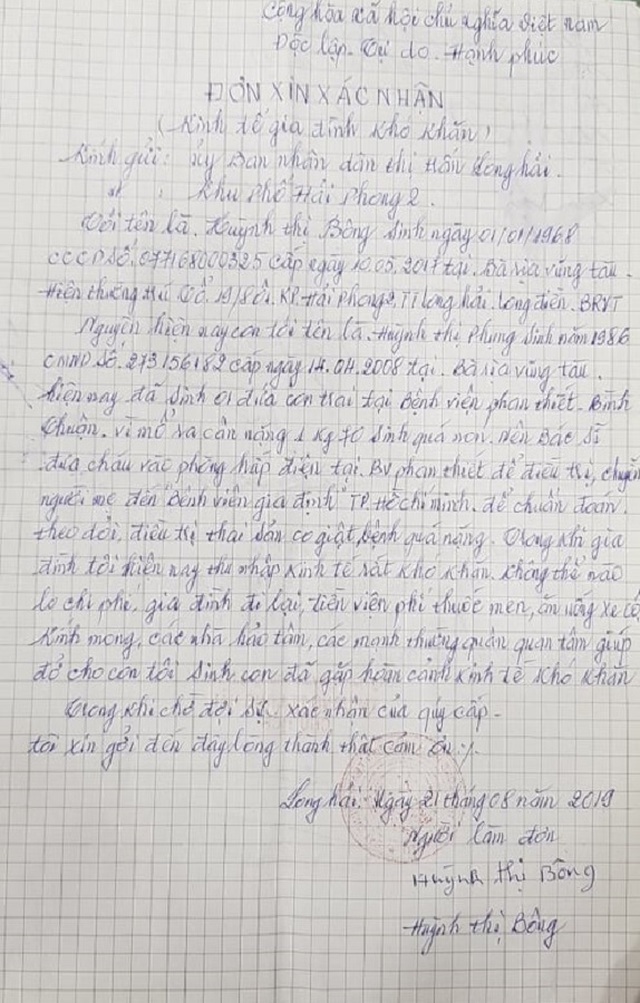 Cộng hòa xã hội chủ nghĩa Việt nam
Độc lập. Tự do. Hạnh phúc
ĐƠN XIN XÁC NHẬN
( Kinh tế gia đình khó khăn )
Kính gửi: Ủy Ban nhân dân thị trấn Long hải.
Khu phố Hải Phong 2.
Tôi tên là. Huỳnh thị Bông Sinh ngày 01/01/1968
CCCD Số. 077168000325 cấp ngày 10.05.2017 tại. Bà rịa vũng tàu.
Hiện thường trú Tổ. 19/8 ôi. KP. Hải Phong 2, TT long hải. long điền. BRVT
Nguyên hiện nay con tôi tên là. Huỳnh thị Phung Sinh năm 1986
CMND Số. 273156182 cấp ngày 14.04.2008 tại. Bà rịa vũng tàu.
hiện nay đã sinh 01 đứa con trai tại Bệnh viện phan thiết. Bình
thuận. vì mổ ra cân nặng 1 kg 70 sinh quá non. nên Bác Sĩ
đưa cháu vào phòng hấp điện tại. BV phan thiết để điều trị, chuyển
người mẹ đến Bệnh viên gia định TP. Hồ chí minh. để chuẩn đoán.
theo dõi, điều trị thai sản co giật, bệnh quá nặng. Trong khi gia
đình tôi hiện nay thu nhập kinh tế rất khó khăn. không thể nào
lo chi phí, gia đình đi lại, tiền viện phí thuốc men, ăn uống xe cộ.
Kính mong, các nhà hảo tâm, các mạnh thường quân quan tâm giúp
đở cho con tôi sinh con đã gặp hoàn cảnh kinh tế khó khăn
Trong khi chờ đợi sự xác nhận của qúy cấp.
tôi xin gởi đến đây lòng thành thật cám ơn ./.
Long hải. Ngày 21 tháng 08 năm 2019
Người làm đơn
Huỳnh thị Bông
Huỳnh thị Bông